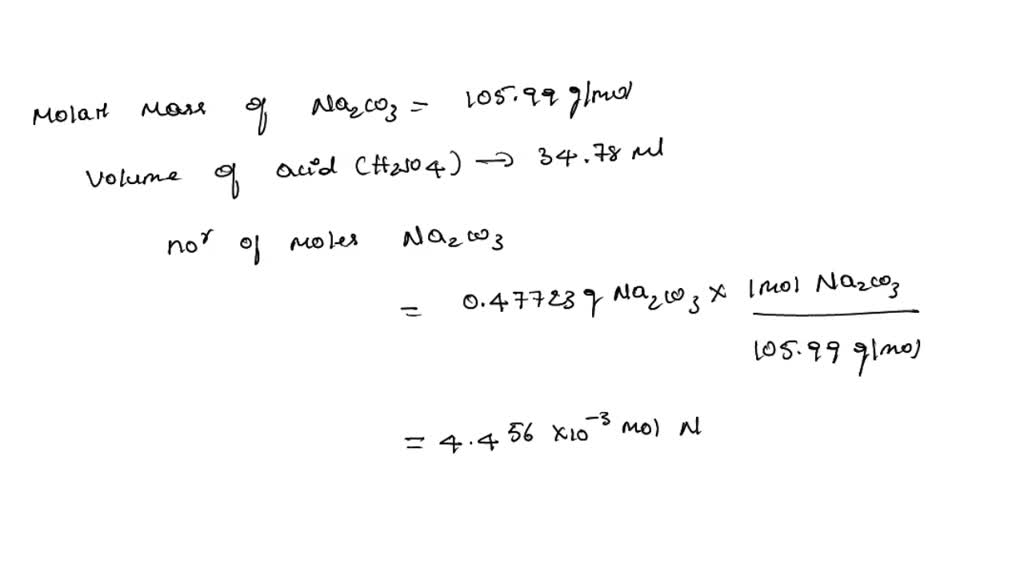 Molar Mass of Na2CO3 = 105.99 g/mol
Volume of acid (H2SO4) → 34.78 ml
nor of moles Na2CO3
= 0.47723 g Na2CO3 × 1mol Na2CO3
105.99 g/mol
= 4.456 ×10⁻³ mol N